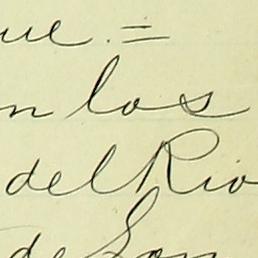 ue. =
n los
del Rio
de Son